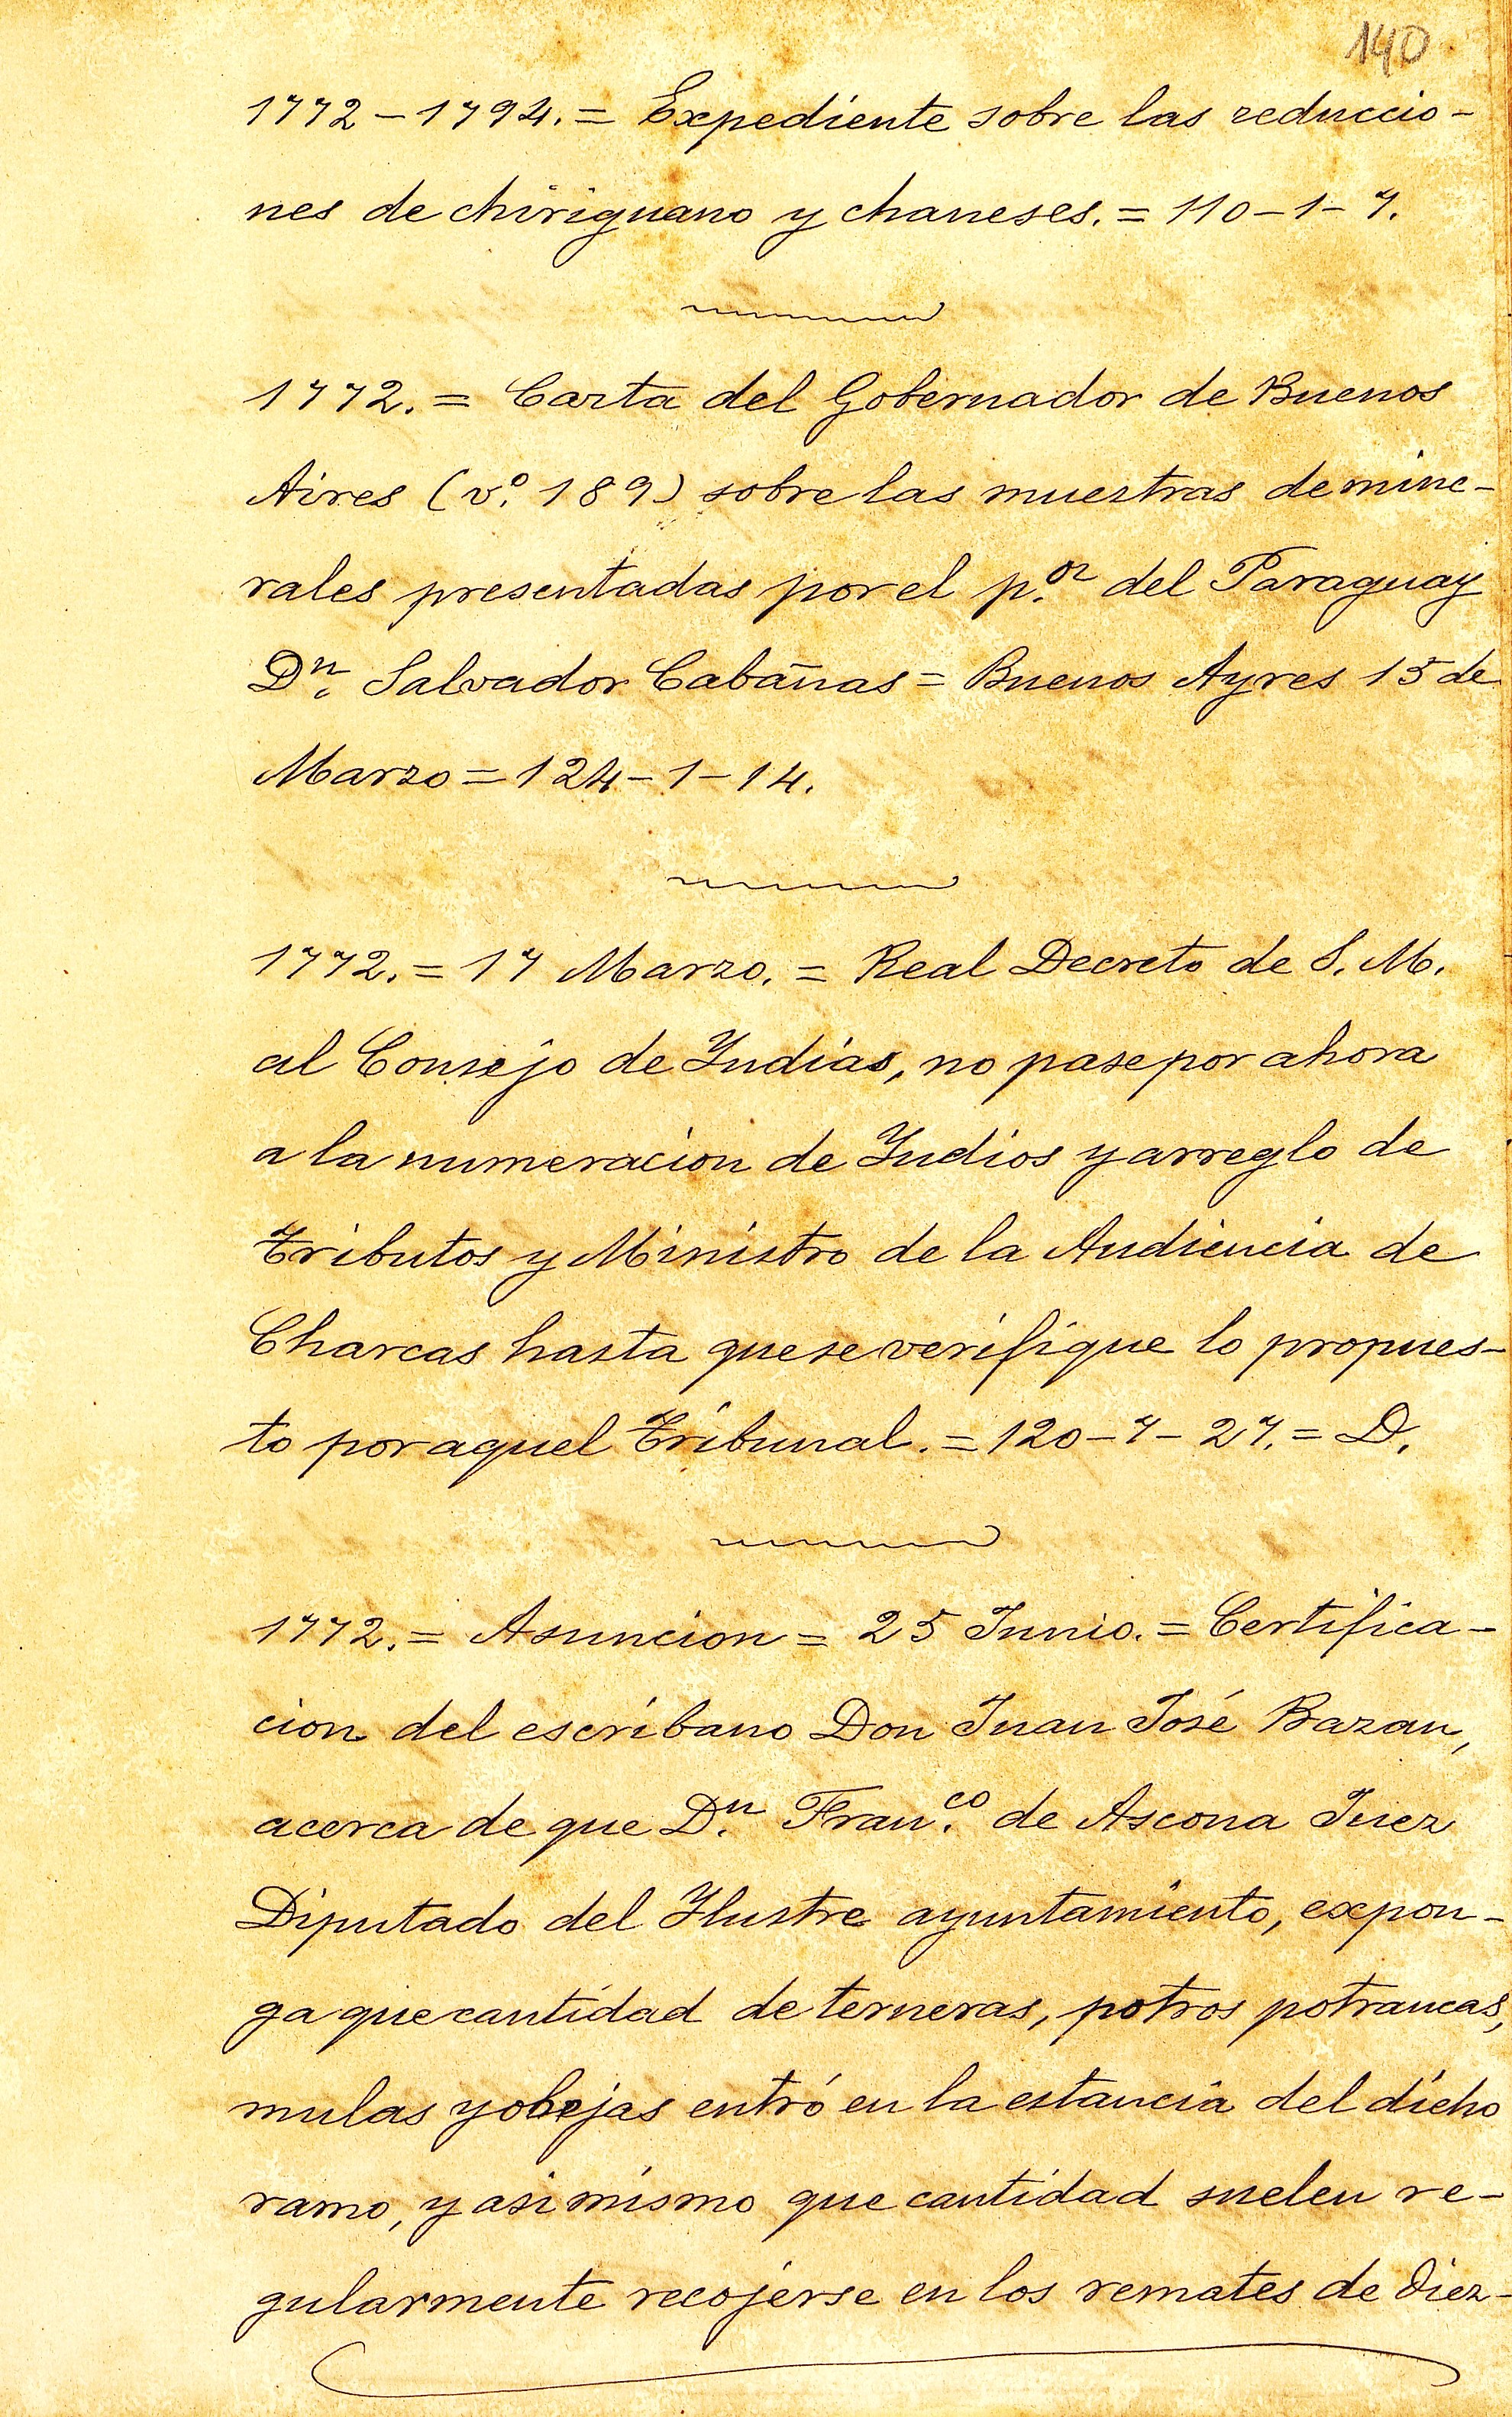 140
1772-1794.= Expediente sobre las reduccio-
nes de chiriguano y chaneses.= 110-1-7.
1772.= Carta del Gobernador de Buenos
Aires (vº. 189) sobre las muestras de mine-
rales presentadas por el p.or del Paraguay
Dn. Salvador Cabañas = Buenos Ayres 15 de
Marzo = 124-1-14.
1772.= 17 Marzo.= Real Decreto de S. M.
al Consejo de Yndias, no pase por ahora
a la numeracion de Yndios y arreglo de
tributos y Ministro de la Audiencia de
Charcas hasta que se verifique lo propues-
to por aquel tribunal.= 120-7-27.= D.
1772.= Asuncion = 25 Junio.= Certifica-
cion del escribano Don Juan José Bazan,
acerca de que Dn. Franco. de Ascona Juez
Diputado del Ylustre ayuntamiento, expon-
ga que cantidad de terneras, potros potrancas,
mulas y obejas entró en la estancia del dicho
ramo, y asi mismo que cantidad suelen re-
gularmente recojerse en los remates de diez-